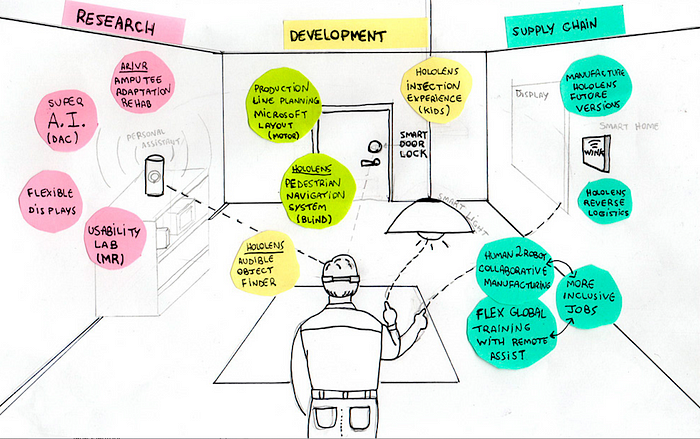 RESEARCH
DEVELOPMENT
SUPPLY CHAIN
AR/VR
AMPUTEE
ADAPTATION
REHAB
SUPER
A.I.
(DAC)
PERSONAL
ASSISTANT
FLEXIBLE
DISPLAYS
USABILITY
LAB
(MR)
PRODUCTION
LINE PLANNING
MICROSOFT
LAYOUT
(MOTOR)
HOLOLENS
PEDESTRIAN
NAVIGATION
SYSTEM
(BLIND)
HOLOLENS
AUDIBLE
OBJECT
FINDER
HOLOLENS
INJECTION
EXPERIENCE
(KIDS)
SMART
DOOR
LOCK
SMART LIGHT
DISPLAY
MANUFACTURE
HOLOLENS
FUTURE
VERSIONS
SMART HOME
WINK
HOLOLENS
REVERSE
LOGISTICS
HUMAN 2 ROBOT
COLLABORATIVE
MANUFACTURING
MORE
INCLUSIVE
JOBS
FLEX GLOBAL
TRAINING
WITH REMOTE
ASSIST